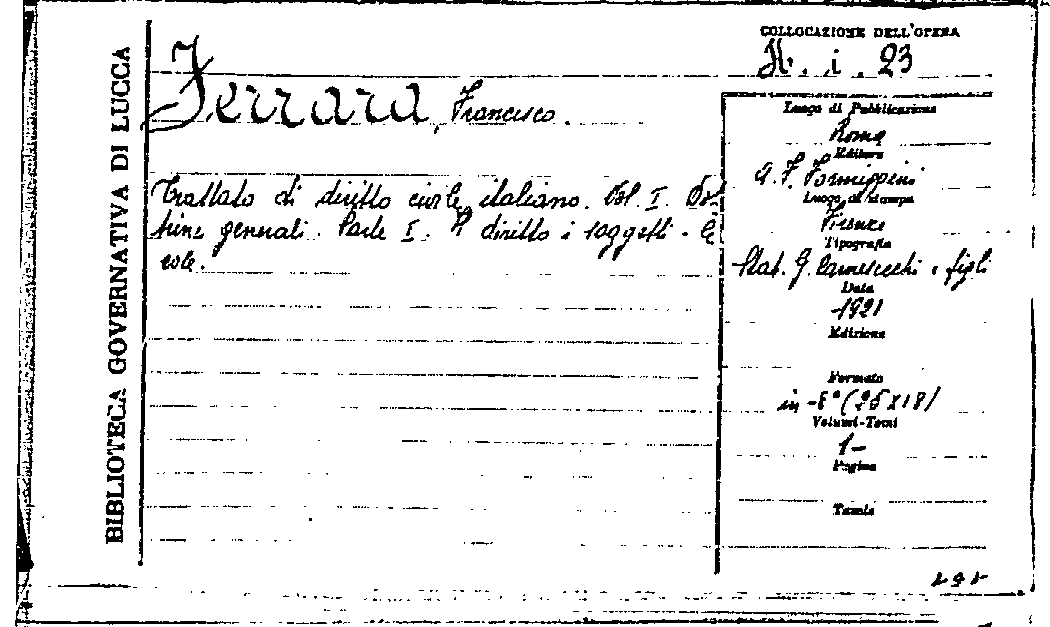 BIBLIOTECA GOVERNATIVA DI LUCCA
COLLOCAZIONE DELL'OPERA
H. i. 23
Ferrara, Francesco.
Trattato di diritto civile italiano. Vol. I. Dot-
trine generali. Parte I. Il diritto i soggetti - le
cose.
Luogo di Pubblicazione
Roma
Editore
A. F. Formiggini
Luogo di stampa
Firenze
Tipografia
Stab. G. Carnesecchi e figli
Data
1921
Edizione
Formato
in-8° (25x18)
Volumi-Tomi
1-
Pagine
Tavole